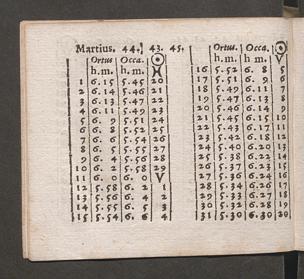 Martius. 44. 43. 45.
Ortus Occa. ☉
h. m. h. m. ♓
1 6.15 5.45 20
2 6.14 5.46 21
3 6.13 5.47 22
4 6.11 5.49 23
5 6. 9 5.51 24
6 6. 8 5.52 25
7 6. 6 5.54 26
8 6. 5 5.55 27
9 6. 4 5.56 28
10 6. 2 5.58 29
11 6. 0 6. 0 ♈
12 5.58 6. 2 1
13 5.56 6. 4 2
14 5.55 6. 5 3
15 5.54 6. 6 4
Ortus. Occa. ☉
h. m. h. m. ♈
16 5.52 6. 8 5
17 5.51 6. 9 6
18 5.49 6.11 7
19 5.47 6.13 8
20 5.46 6.14 9
21 5.45 6.15 10
22 5.43 6.17 11
23 5.42 6.18 12
24 5.40 6.20 13
25 5.38 6.22 14
26 5.37 6.23 15
27 5.36 6.24 16
28 5.34 6.26 17
29 5.33 6.27 18
30 5.32 6.28 19
31 5.30 6.30 20